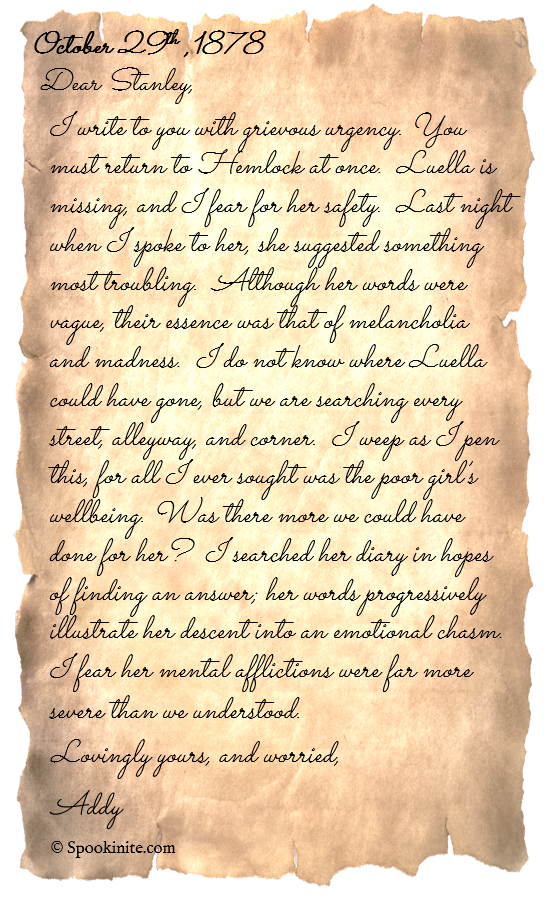 October 29th, 1878
Dear Stanley,
I write to you with grievous urgency. You
must return to Hemlock at once. Luella is
missing, and I fear for her safety. Last night
when I spoke to her, she suggested something
most troubling. Although her words were
vague, their essence was that of melancholia
and madness. I do not know where Luella
could have gone, but we are searching every
street, alleyway, and corner. I weep as I pen
this, for all I ever sought was the poor girl's
wellbeing. Was there more we could have
done for her? I searched her diary in hopes
of finding an answer; her words progressively
illustrate her descent into an emotional chasm.
I fear her mental afflictions were far more
severe than we understood.
Lovingly yours, and worried,
Addy
© Spookinite.com